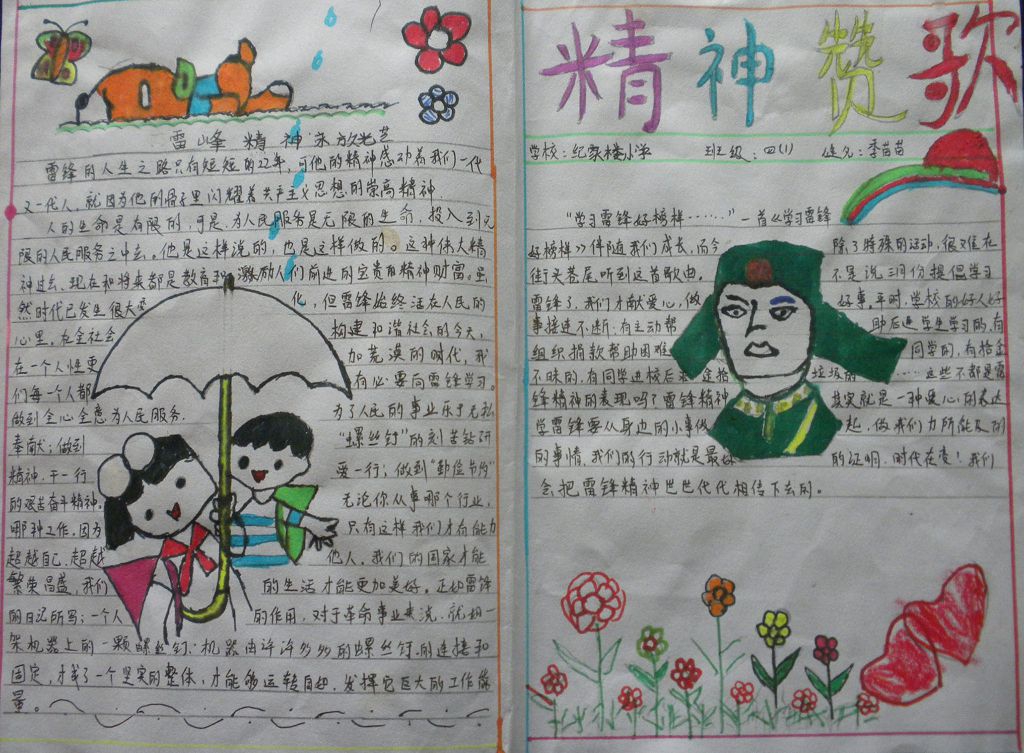 雷峰精神永放光芒
雷锋的人生之路只有短短的22年,可他的精神感动着我们一代
又一代人,就因为他的骨子里闪耀着共产主义思想的崇高精神
人的生命是有限的,可是,为人民服务是无限的生命,投入到无
限的人民服务之中去。他是这样说的,也是这样做的。这种伟大精
神过去、现在和将来都是教育和激励人们前进的宝贵的精神财富。虽
然时代已发生很大变化,但雷锋始终活在人民的
心里。在全社会构建和谐社会的今天,
在一个人性更加荒漠的时代,我
们每一个人都有必要向雷锋学习。
做到全心全意为人民服务.为了人民的事业乐于无私
奉献;做到“螺丝钉”的刻苦钻研
精神,干一行爱一行;做到“勤俭节约”
的艰苦奋斗精神。无论你从事哪个行业,
哪种工作。因为只有这样我们才有能力
超越自己,超越他人。我们的国家才能
繁荣昌盛,我们的生活才能更加美好。正如雷锋
的日记所写:一个人的作用,对于革命事业来说,就如一
架机器上的一颗螺丝钉.机器由许许多多的螺丝钉的连接和
固定,才成了一个坚实的整体,才能够运转自如,发挥它巨大的工作能
量。
精神赞歌
学校:纪家楼小学 班级:四(1) 姓名:季苗苗
“学习雷锋好榜样……”一首《学习雷锋
好榜样》伴随我们成长,而今除了特殊的活动,很难在
街头巷尾听到这首歌曲。不是说三月份提倡学习
雷锋了,我们才献爱心,做好事。平时,学校的好人好
事接连不断:有主动帮助后进学生学习的,有
组织捐款帮助困难同学的,有拾金
不昧的,有同学进校后来捡拾垃圾的……这些不都是雷
锋精神的表现吗?雷锋精神其实就是一种爱心的表达
学雷锋要从身边的小事做起,做我们力所能及的
的事情,我们的行动就是最好的证明,时代在变!我们
会把雷锋精神世世代代相传下去的。